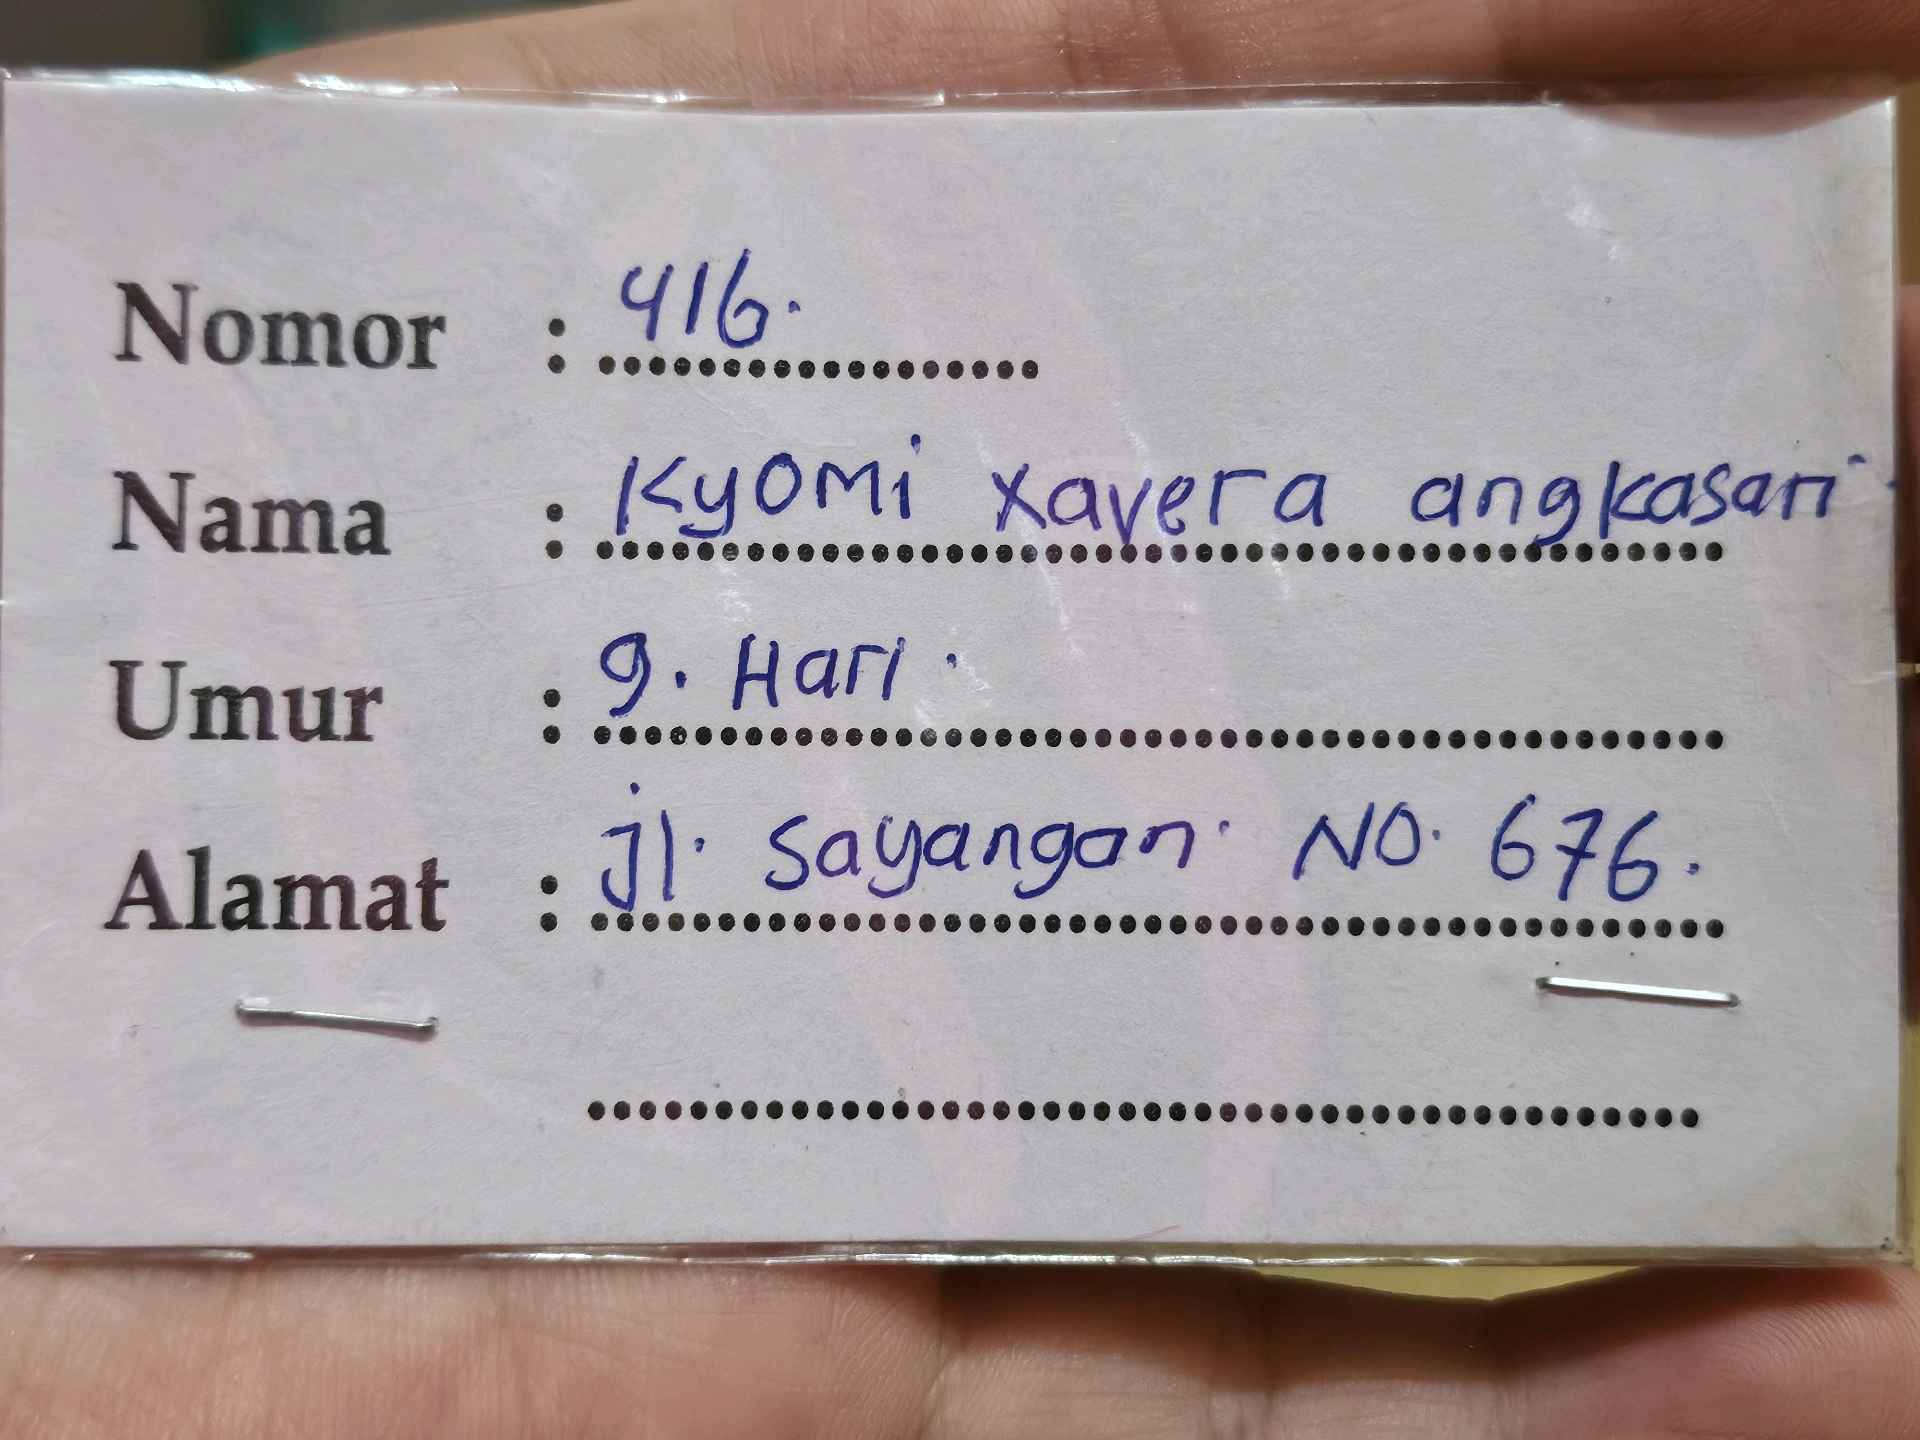 Nomor : 416.
Nama : Kyomi xavera angkasari.
Umur : 9. Hari.
Alamat : jl. Sayangan. NO. 676.